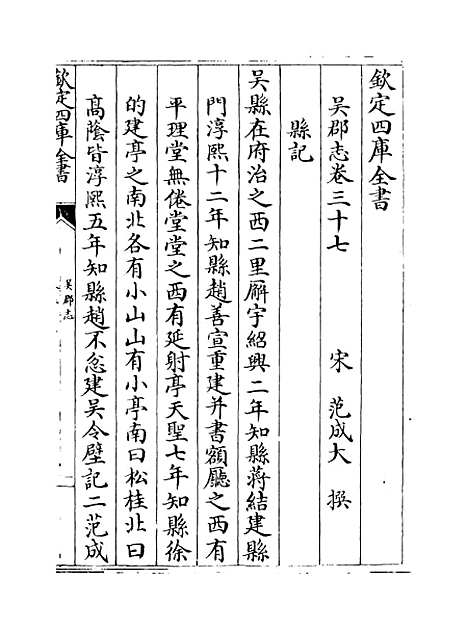 欽定四庫全書
吳郡志卷三十七
宋 范成大 撰
縣記
吳縣在府治之西二里廨宇紹興二年知縣蔣結建縣
門淳熙十二年知縣趙善宣重建并書額廳之西有
平理堂無倦堂堂之西有延射亭天聖七年知縣徐
的建亭之南北各有小山山有小亭南曰松桂北曰
高蔭皆淳熙五年知縣趙不忿建吳令壁記二范成
欽定四庫全書
吳郡志